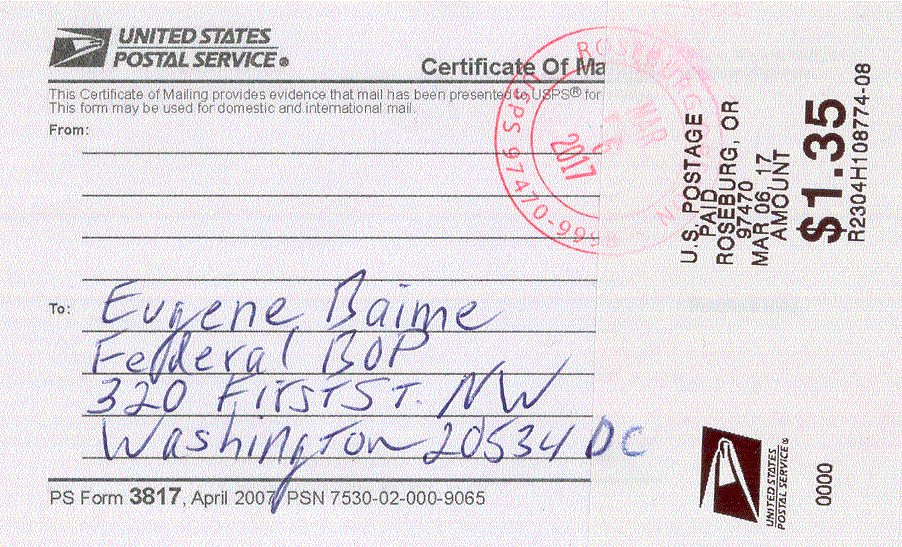 UNITED STATES
POSTAL SERVICE®
Certificate Of Ma
This Certificate of Mailing provides evidence that mail has been presented to USPS® for
This form may be used for domestic and international mail.
From:
To: Eugene Baime
Federal BOP
320 First St. NW
Washington 20534 DC
PS Form 3817, April 2007 PSN 7530-02-000-9065
ROSEBURG
MAR
2017
USPS 97470-999
U.S. POSTAGE
PAID
ROSEBURG, OR
97470
MAR 06, 17
AMOUNT
$1.35
R2304H108774-08
UNITED STATES
POSTAL SERVICE®
0000